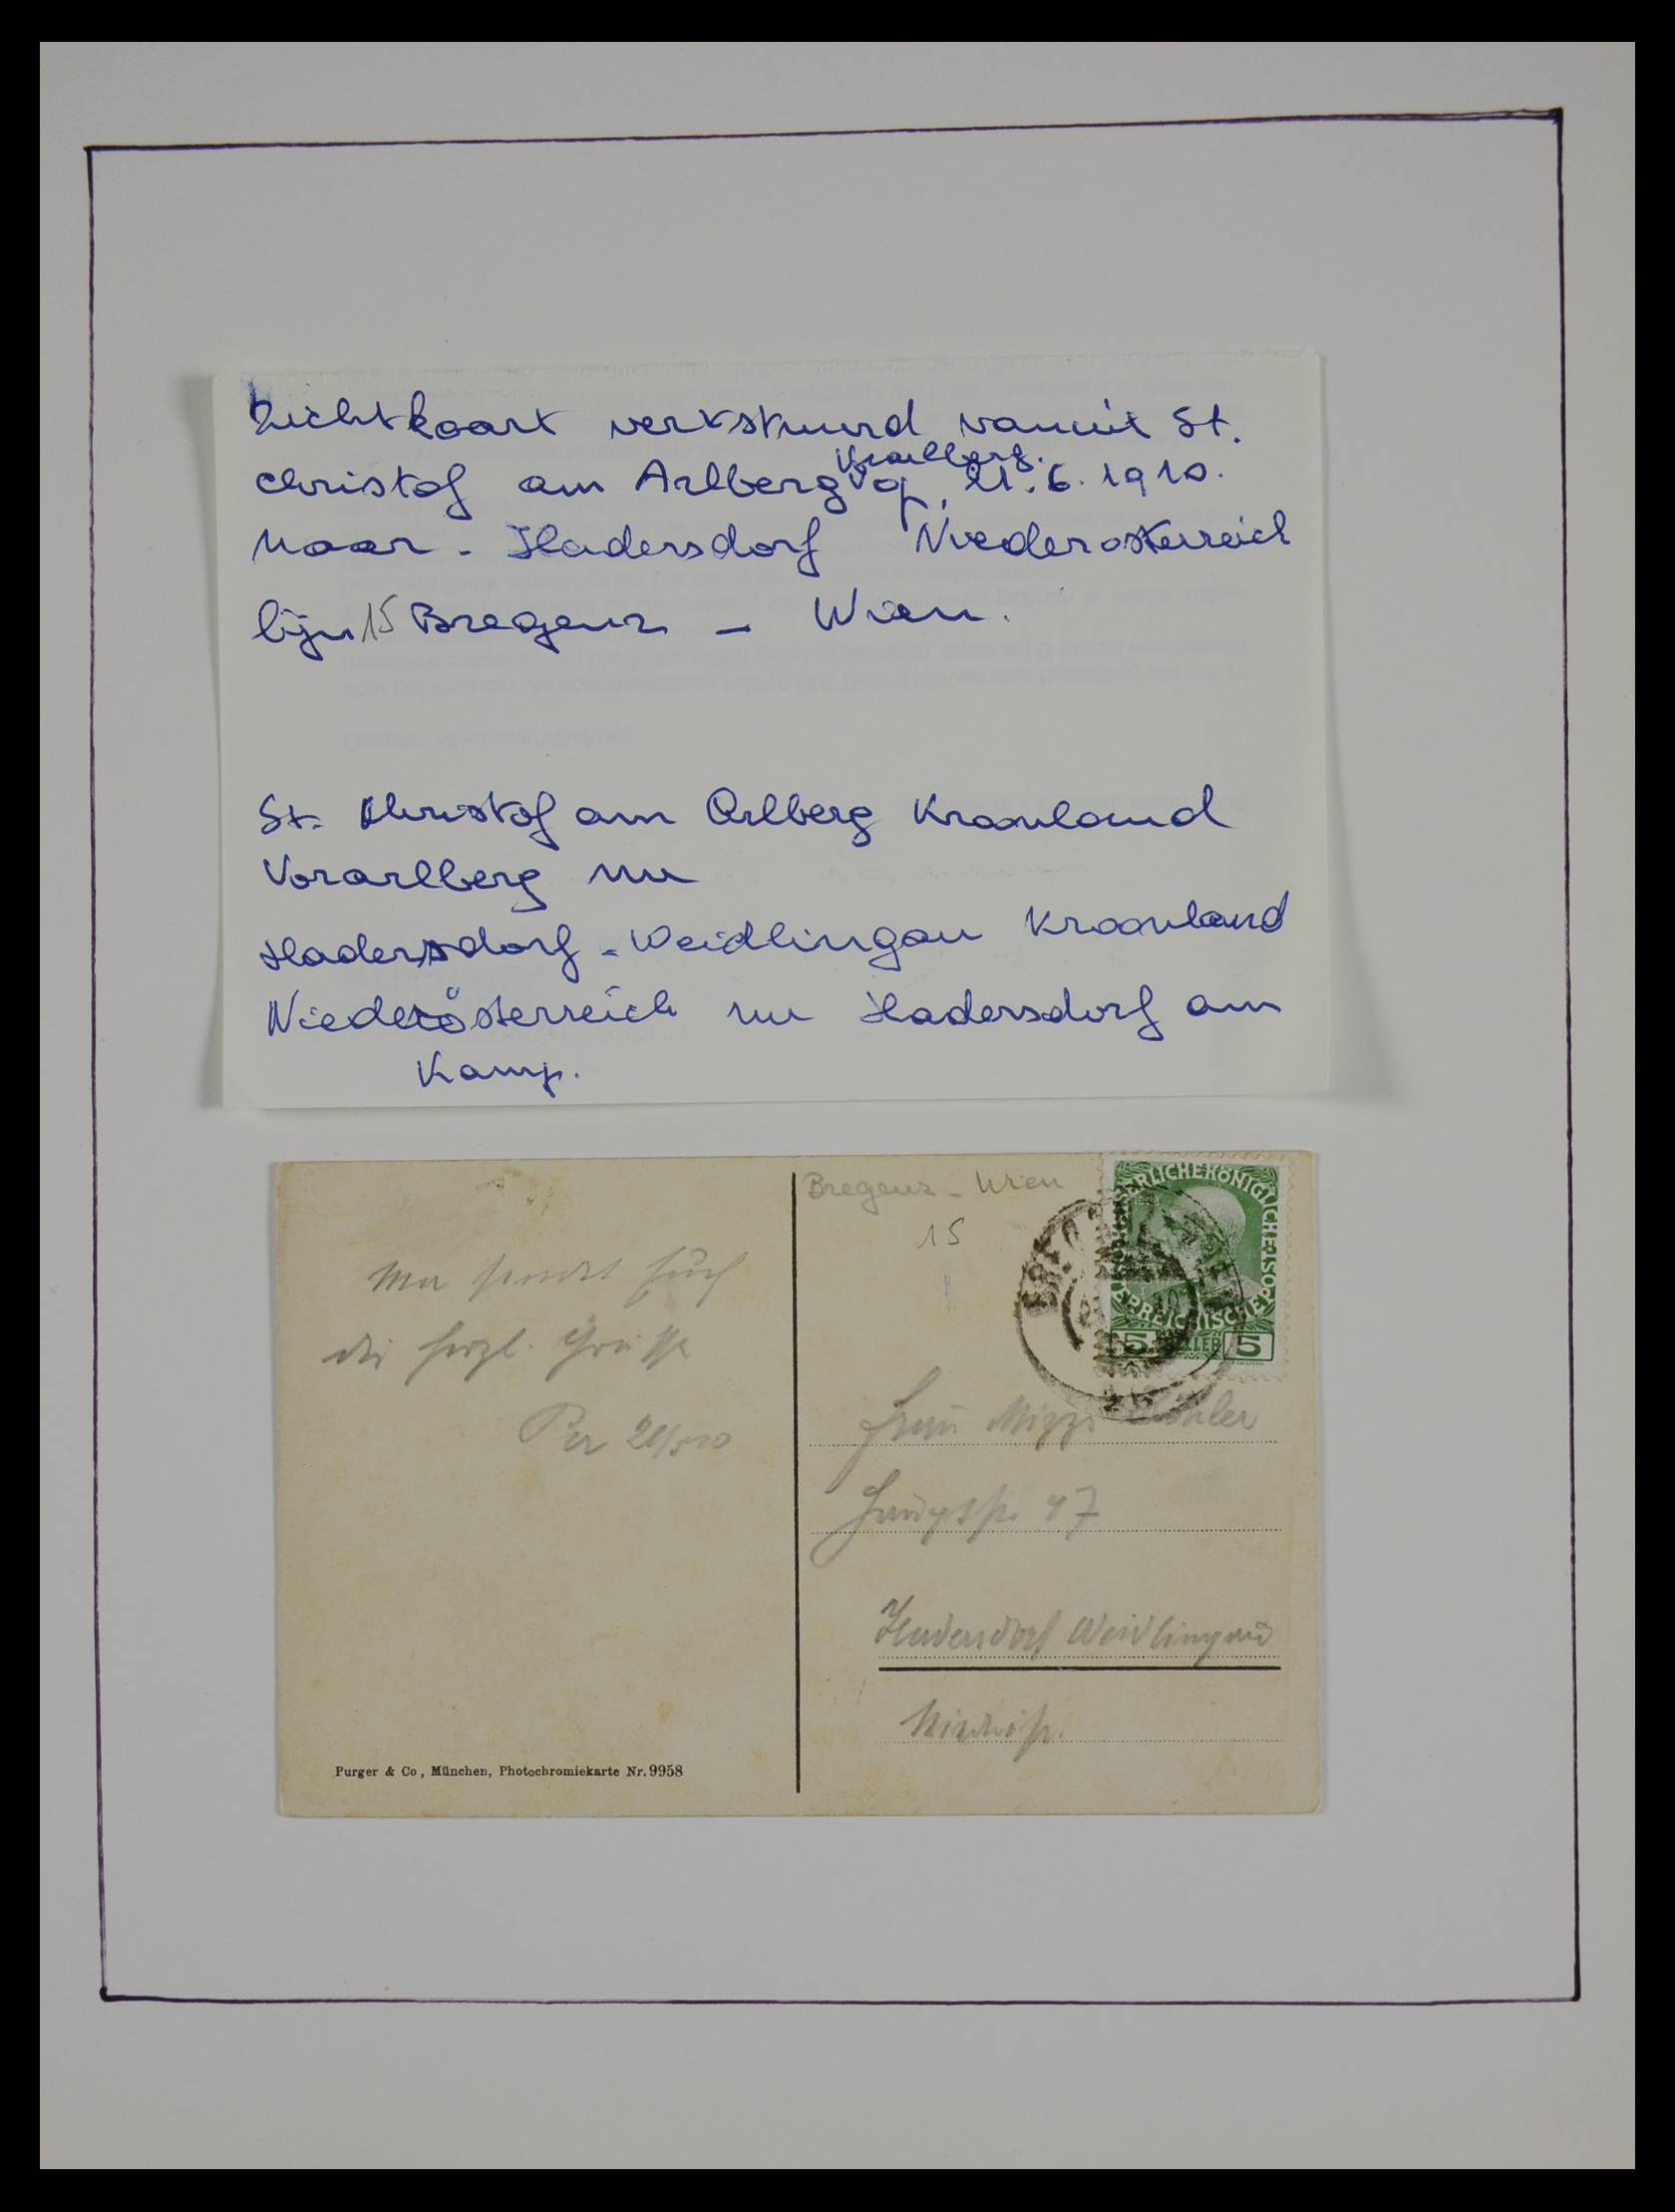 Zichtkaart verkstuurd vanuit St.
Christof am Arlberg Vorarlberg. op 21.6.1910.
Naar - Hadersdorf Niederosterreich
lijn 15 Bregenz - Wien.
St. Christof am Arlberg Kroonland
Vorarlberg nu
Hadersdorf - Weidlingau Kroonland
Niederösterreich nu Hadersdorf am
Kamp.
Bregenz - Wien
15
KAISERLICHE KÖNIGLICHE
ÖSTERREICHISCHE POST
5 HELLER 5
die herzl. Grüsse
Frau Mizzi
Hauptstr. 47
Hadersdorf Weidlingau
Purger & Co, München, Photochromiekarte Nr. 9958